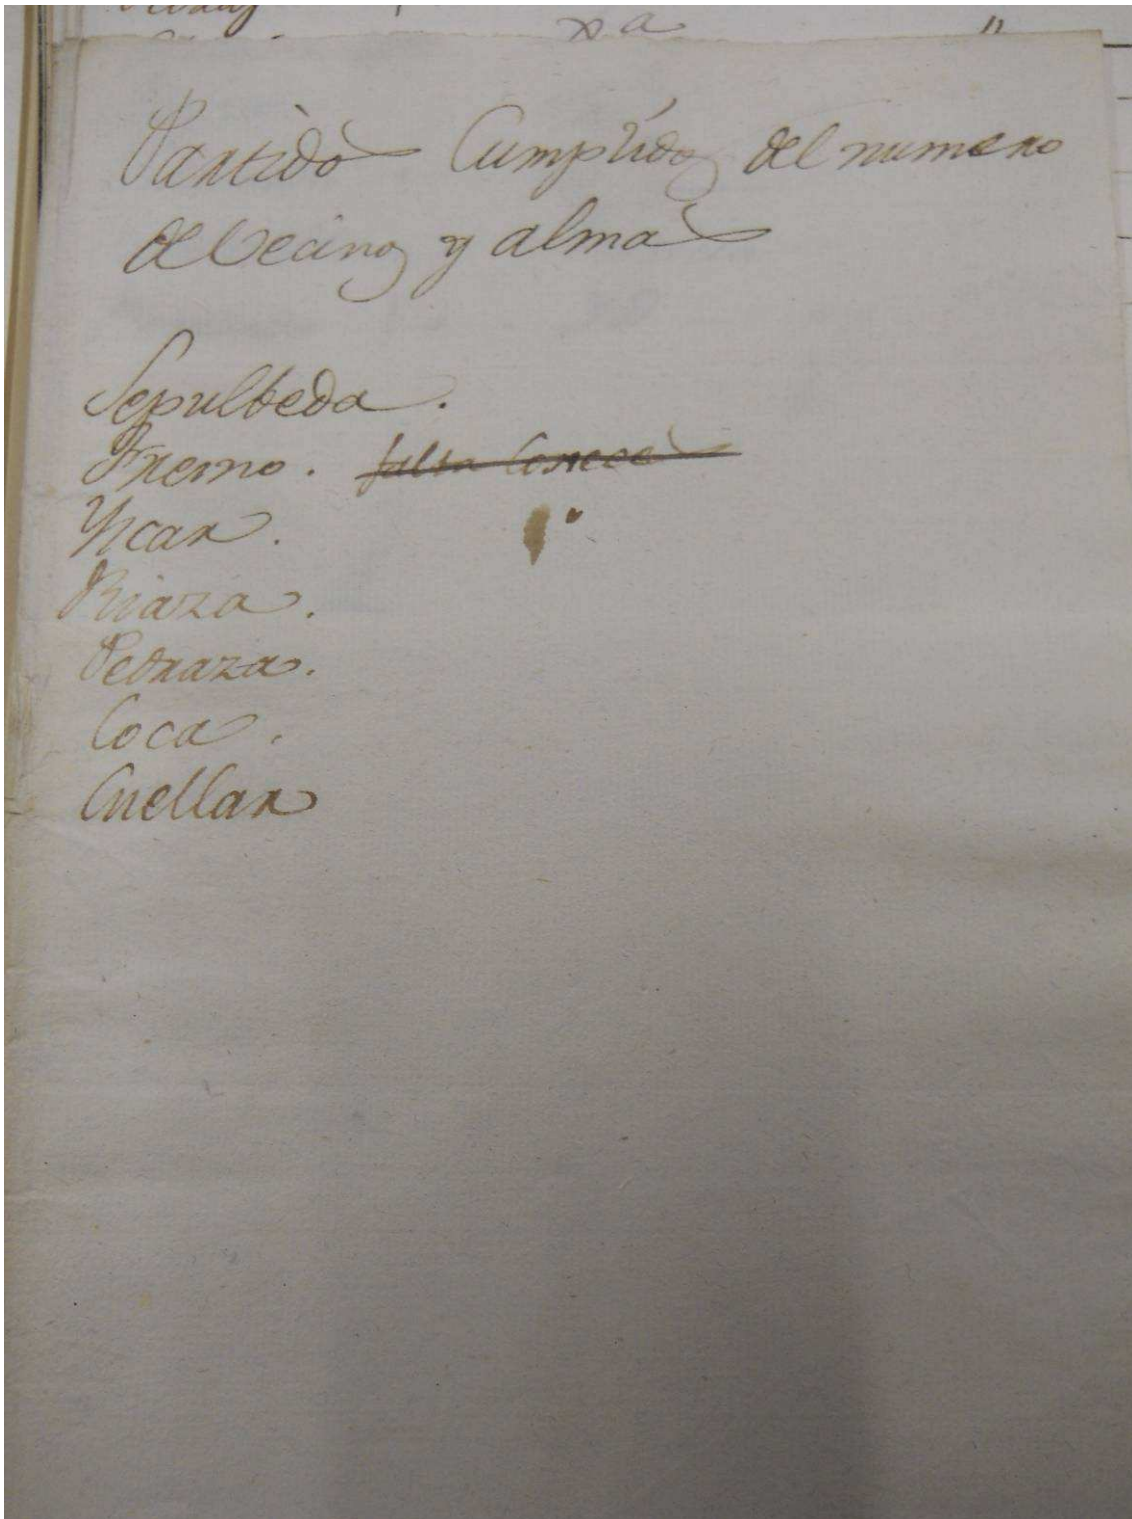 Partidos Cumplidos del numero
de Vecinos y almas
Sepulbeda.
Fresno. falta
Yscar.
Riaza.
Pedraza.
Coca.
Cuellar